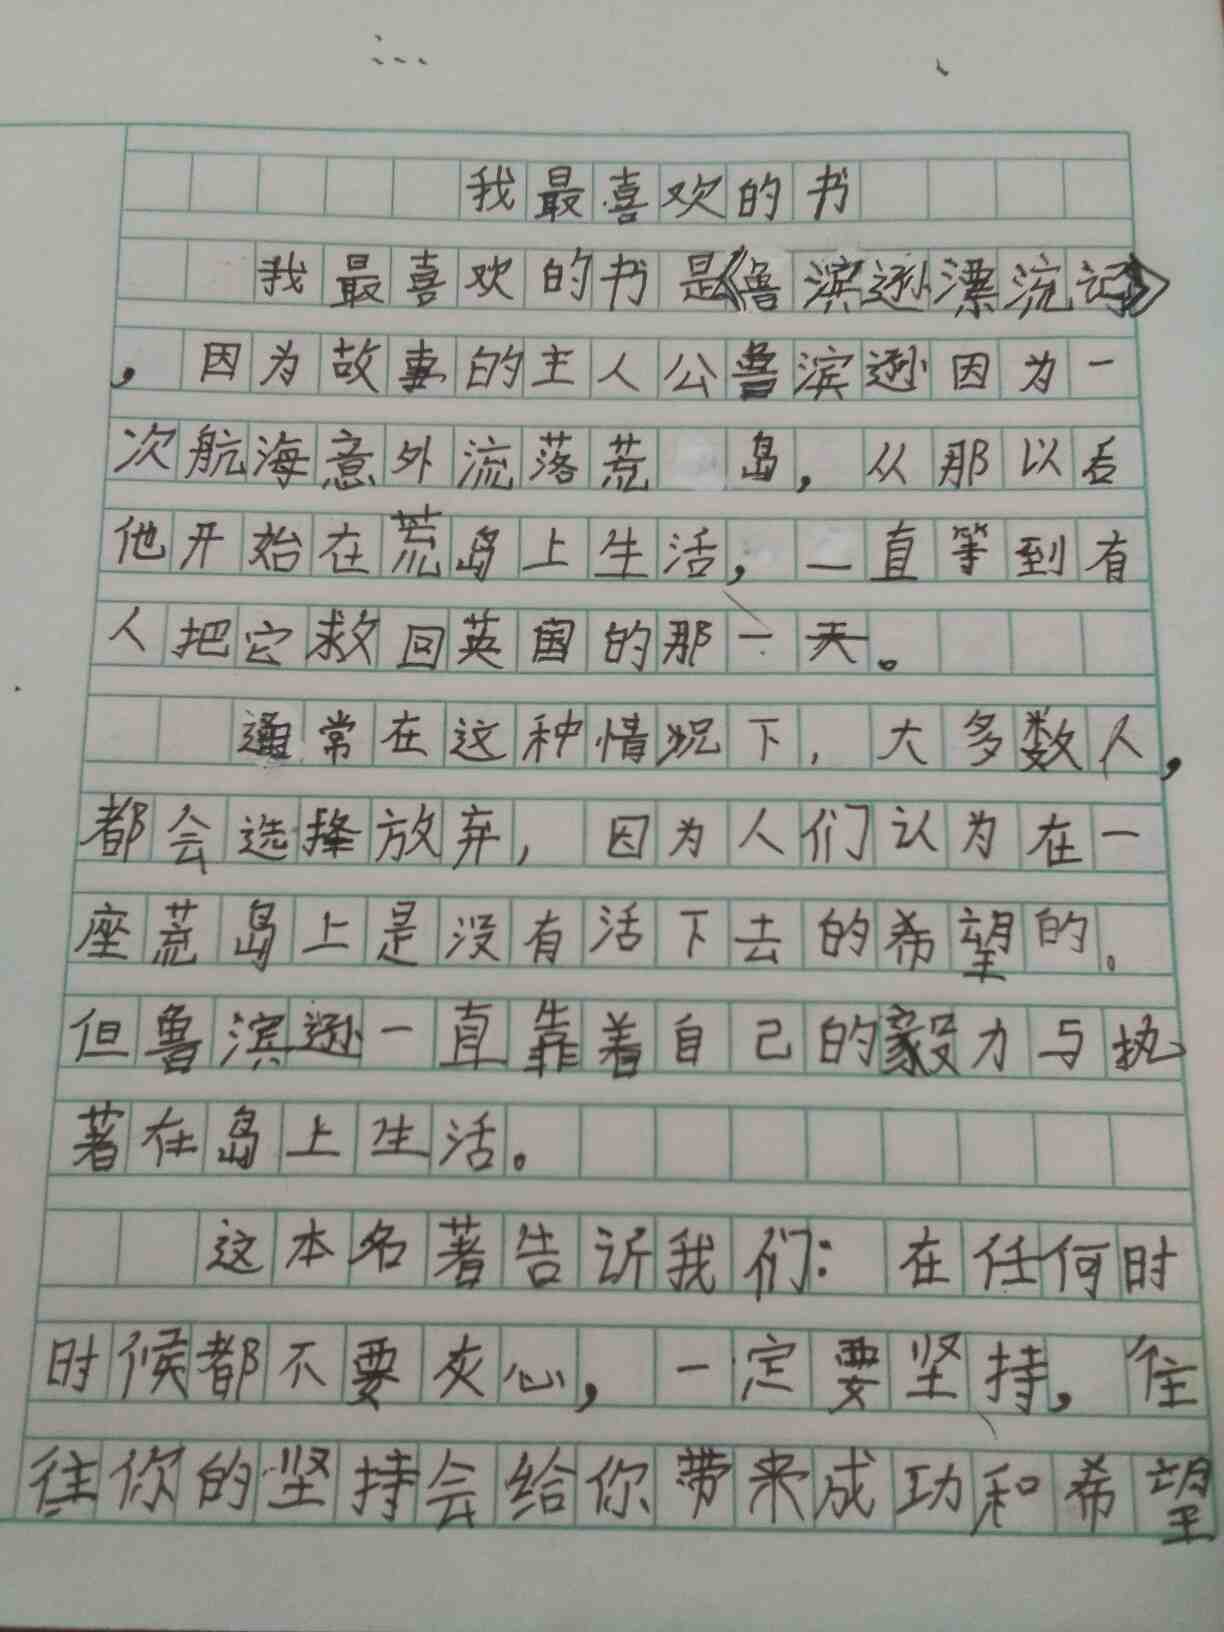 我最喜欢的书
我最喜欢的书是《鲁滨逊漂流记》
，因为故事的主人公鲁滨逊因为一
次航海意外流落荒岛，从那以后
他开始在荒岛上生活，一直等到有
人把它救回英国的那一天。
通常在这种情况下，大多数人，
都会选择放弃，因为人们认为在一
座荒岛上是没有活下去的希望的。
但鲁滨逊一直靠着自己的毅力与执
著在岛上生活。
这本名著告诉我们：在任何时
时候都不要灰心，一定要坚持，往
往你的坚持会给你带来成功和希望